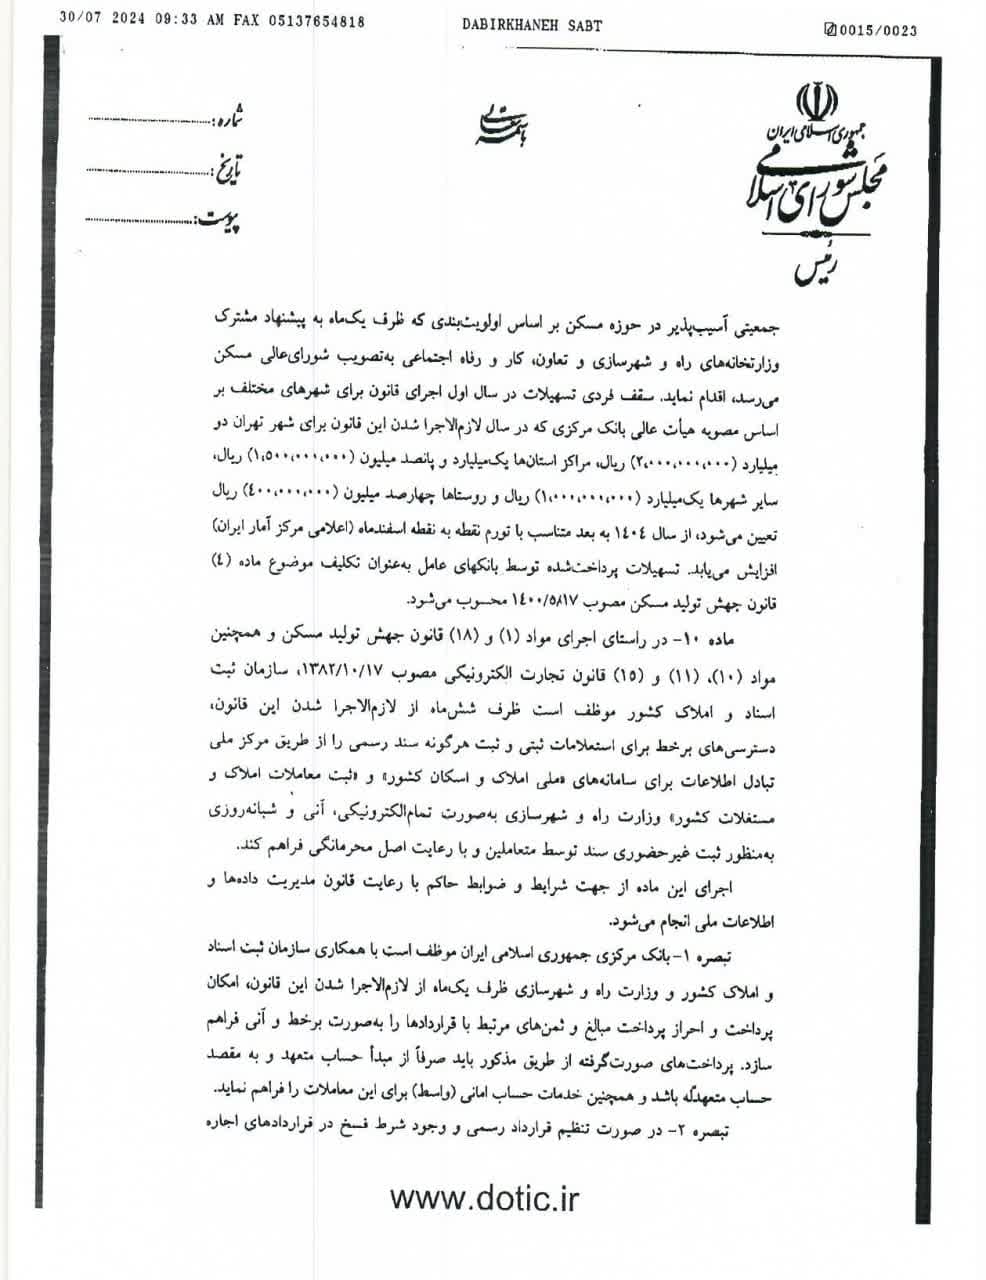 30/07 2024 09:33 AM FAX 05137654818 DABIRKHANEH SABT 0015/0023
جمهوری اسلامی ایران
مجلس شورای اسلامی
رئیس
باسمه تعالی
شماره:
تاریخ:
پیوست:
جمعیتی آسیب‌پذیر در حوزه مسکن بر اساس اولویت‌بندی که ظرف یک‌ماه به پیشنهاد مشترک
وزارتخانه‌های راه و شهرسازی و تعاون، کار و رفاه اجتماعی به‌تصویب شورای‌عالی مسکن
می‌رسد، اقدام نماید. سقف فردی تسهیلات در سال اول اجرای قانون برای شهرهای مختلف بر
اساس مصوبه هیأت عالی بانک مرکزی که در سال لازم‌الاجرا شدن این قانون برای شهر تهران دو
میلیارد (۲،۰۰۰،۰۰۰،۰۰۰) ریال، مراکز استان‌ها یک‌میلیارد و پانصد میلیون (۱،۵۰۰،۰۰۰،۰۰۰) ریال،
سایر شهرها یک‌میلیارد (۱،۰۰۰،۰۰۰،۰۰۰) ریال و روستاها چهارصد میلیون (۴۰۰،۰۰۰،۰۰۰) ریال
تعیین می‌شود، از سال ۱۴۰۴ به بعد متناسب با تورم نقطه به نقطه اسفندماه (اعلامی مرکز آمار ایران)
افزایش می‌یابد. تسهیلات پرداخت‌شده توسط بانکهای عامل به‌عنوان تکلیف موضوع ماده (۴)
قانون جهش تولید مسکن مصوب ۱۴۰۰/۵/۱۷ محسوب می‌شود.
ماده ۱۰- در راستای اجرای مواد (۱) و (۱۸) قانون جهش تولید مسکن و همچنین
مواد (۱۰)، (۱۱) و (۱۵) قانون تجارت الکترونیکی مصوب ۱۳۸۲/۱۰/۱۷، سازمان ثبت
اسناد و املاک کشور موظف است ظرف شش‌ماه از لازم‌الاجرا شدن این قانون،
دسترسی‌های برخط برای استعلامات ثبتی و ثبت هرگونه سند رسمی را از طریق مرکز ملی
تبادل اطلاعات برای سامانه‌های «ملی املاک و اسکان کشور» و «ثبت معاملات املاک و
مستغلات کشور» وزارت راه و شهرسازی به‌صورت تمام‌الکترونیکی، آنی و شبانه‌روزی
به‌منظور ثبت غیرحضوری سند توسط متعاملین و با رعایت اصل محرمانگی فراهم کند.
اجرای این ماده از جهت شرایط و ضوابط حاکم با رعایت قانون مدیریت داده‌ها و
اطلاعات ملی انجام می‌شود.
تبصره ۱- بانک مرکزی جمهوری اسلامی ایران موظف است با همکاری سازمان ثبت اسناد
و املاک کشور و وزارت راه و شهرسازی ظرف یک‌ماه از لازم‌الاجرا شدن این قانون، امکان
پرداخت و احراز پرداخت مبالغ و ثمن‌های مرتبط با قراردادها را به‌صورت برخط و آنی فراهم
سازد. پرداخت‌های صورت‌گرفته از طریق مذکور باید صرفاً از مبدأ حساب متعهد و به مقصد
حساب متعهدٌله باشد و همچنین خدمات حساب امانی (واسط) برای این معاملات را فراهم نماید.
تبصره ۲- در صورت تنظیم قرارداد رسمی و وجود شرط فسخ در قراردادهای اجاره
www.dotic.ir